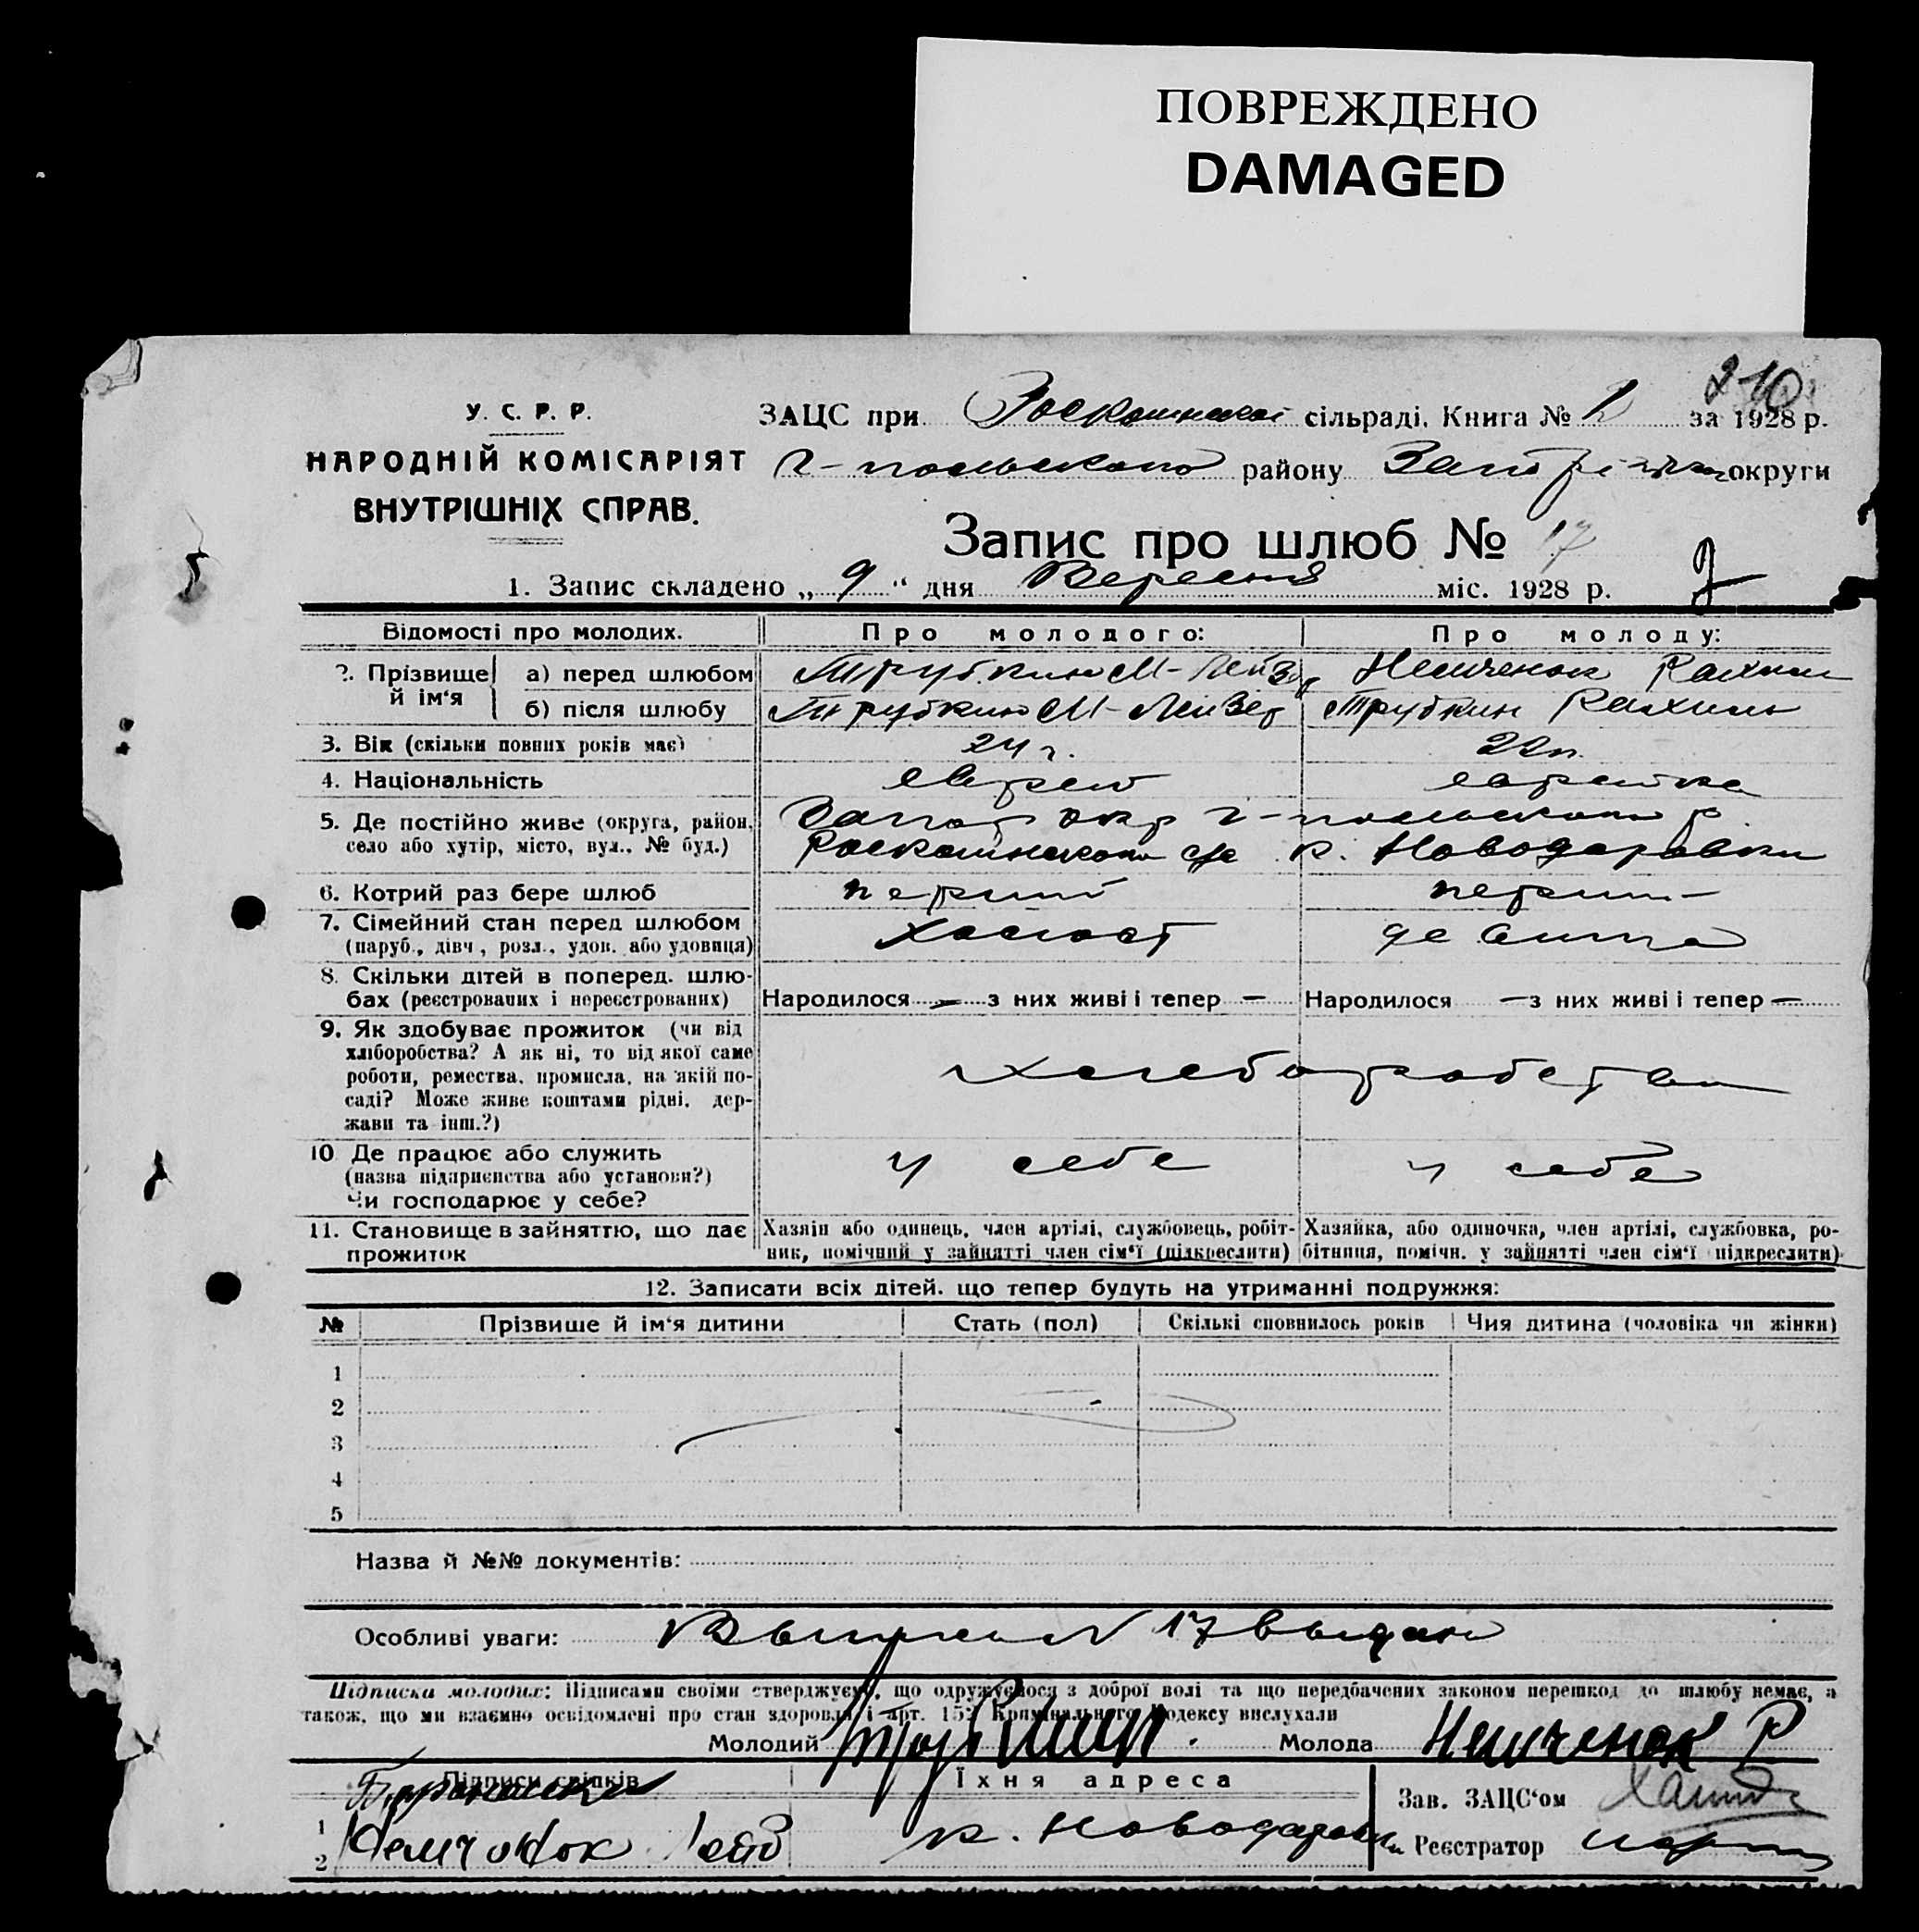 ПОВРЕЖДЕНО
DAMAGED
210
У. С. Р. Р.
НАРОДНІЙ КОМІСАРІЯТ
ВНУТРІШНІХ СПРАВ.
ЗАЦС при Роскошнской сільраді. Книга № за 1928 р.
г-польского району округи
Запис про шлюб № 17
1. Запис складено „ 9 “ дня Вересня міс. 1928 р.
Відомості про молодих. Про молодого: Про молоду:
2. Прізвище й ім‘я а) перед шлюбом Трубкин М-Лейзер Немченок Рахиль
б) після шлюбу Трубкин М-Лейзер Трубкин Рахиль
3. Вік (скільки повних років має) 24 г. 22 л.
4. Національність еврей еврейка
5. Де постійно живе (округа, район, Запор окр г-польского р.
село або хутір, місто, вул., № буд.) Роскошнского с/с к. Новодаровки
6. Котрий раз бере шлюб первый
7. Сімейний стан перед шлюбом холост девица
(паруб., дівч., розл., удов. або удовиця)
8. Скільки дітей в поперед. шлю-
бах (реєстрованих і нереєстрованих) Народилося — з них живі і тепер — Народилося — з них живі і тепер —
9. Як здобуває прожиток (чи від
хліборобства? А як ні, то від якої саме
роботи, ремества, промисла, на якій по-
саді? Може живе коштами рідні, дер-
жави та інш.?)
10 Де працює або служить у себе у себе
(назва підприєнства або установи?)
Чи господарює у себе?
11. Становище в зайняттю, що дає Хазяїн або одинець, член артілі, службовець, робіт- Хазяйка, або одиночка, член артілі, службовка, ро-
прожиток ник, помічний у зайнятті член сім‘ї (підкреслити) бітниця, помічн. у зайнятті член сім‘ї підкреслити)
12. Записати всіх дітей. що тепер будуть на утриманні подружжя:
№ Прізвище й ім‘я дитини Стать (пол) Скількі сповнилось років Чия дитина (чоловіка чи жінки)
1
2
3
4
5
Назва й №№ документів:
Особливі уваги: 17 выдан
Підписка молодих: Підписами своїми стверджуємо, що одружуємося з доброї волі та що передбачених законом перешкод до шлюбу немає, а
також, що ми взаємно освідомлені про стан здоровля і арт. 152 Кримінального Кодексу вислухали
Молодий Трубкин. Молода Немченок Р
Підписи свідків Їхня адреса
Зав. ЗАЦС‘ом
1 к. Новодаровки
2 Немченок Реєстратор